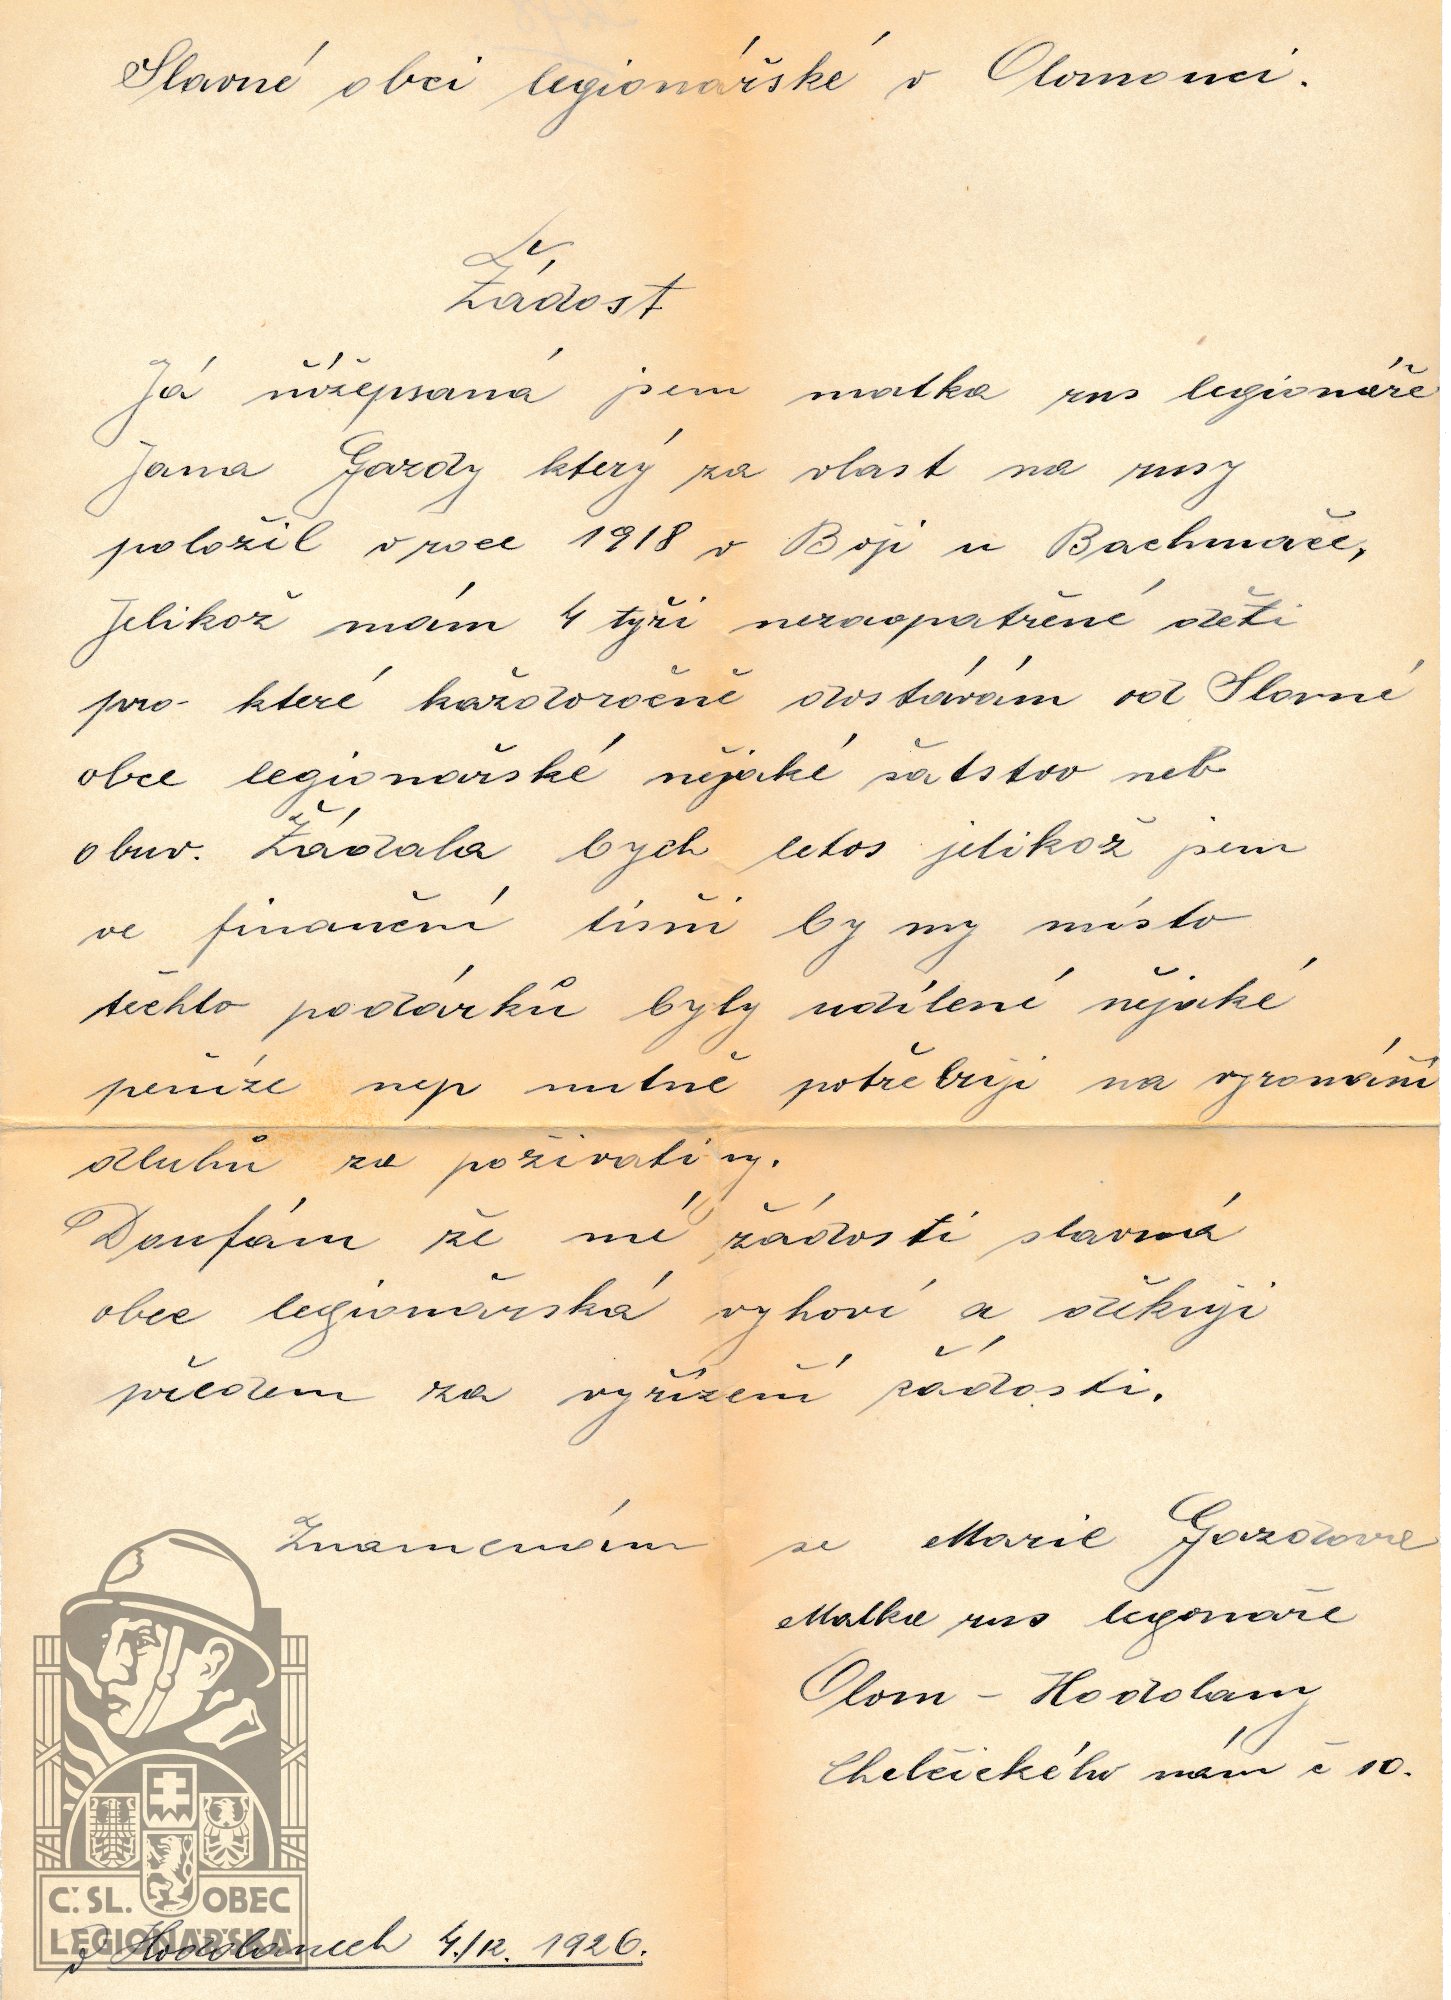 Slavné obci legionářské v Olomouci.
Žádost
Já nížepsaná jsem matka rus legionáře
Jana Gazdy který za vlast na rusy
položil v roce 1918 v Boji u Bachmače,
Jelikož mám 4 tyři nezaopatřené děti
pro- které každoročně dostávám od Slavné
obce legionářské nějaké šatstvo neb
obuv. Žádala bych letos jelikož jsem
ve finanční tísni by my místo
těchto podárků byly udílené nějaké
peníze nep nutně potřebuji na vyrovnání
dluhů za poživatiny.
Doufám že mé žádosti slavná
obec legionářská vyhoví a děkuji
předem za vyřízení žádosti.
Znamenám se Marie Gazdova
Matka rus legonaře
Olom - Hodolany
Chelčického nám č 10.
Č. SL. OBEC
LEGIONÁŘSKÁ
V Hodolanech 4./12. 1926.